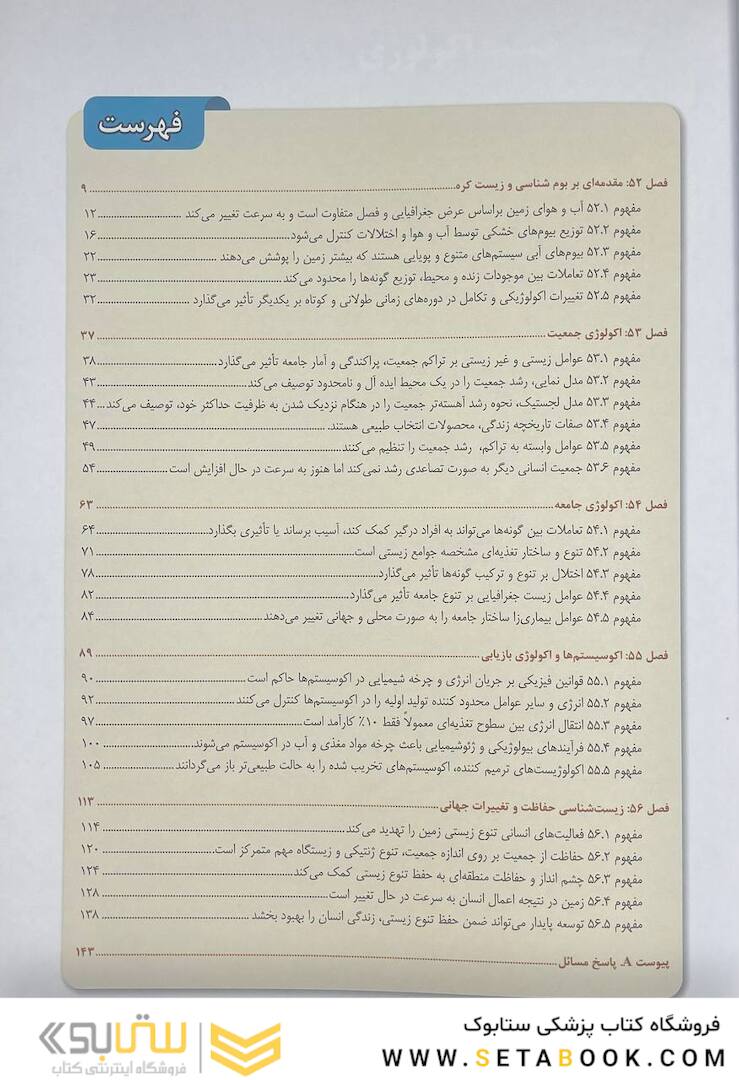 فهرست
فصل ۵۲: مقدمه‌ای بر بوم شناسی و زیست کره ۹
مفهوم ۵۲.۱ آب و هوای زمین براساس عرض جغرافیایی و فصل متفاوت است و به سرعت تغییر می‌کند ۱۲
مفهوم ۵۲.۲ توزیع بیوم‌های خشکی توسط آب و هوا و اختلالات کنترل می‌شود ۱۶
مفهوم ۵۲.۳ بیوم‌های آبی سیستم‌های متنوع و پویایی هستند که بیشتر زمین را پوشش می‌دهند ۲۲
مفهوم ۵۲.۴ تعاملات بین موجودات زنده و محیط، توزیع گونه‌ها را محدود می‌کند ۲۳
مفهوم ۵۲.۵ تغییرات اکولوژیکی و تکامل در دوره‌های زمانی طولانی و کوتاه بر یکدیگر تأثیر می‌گذارد ۳۲
فصل ۵۳: اکولوژی جمعیت ۳۷
مفهوم ۵۳.۱ عوامل زیستی و غیر زیستی بر تراکم جمعیت، پراکندگی و آمار جامعه تأثیر می‌گذارد ۳۸
مفهوم ۵۳.۲ مدل نمایی، رشد جمعیت را در یک محیط ایده آل و نامحدود توصیف می‌کند ۴۳
مفهوم ۵۳.۳ مدل لجستیک، نحوه رشد آهسته‌تر جمعیت را در هنگام نزدیک شدن به ظرفیت حداکثر خود، توصیف می‌کند ۴۴
مفهوم ۵۳.۴ صفات تاریخچه زندگی، محصولات انتخاب طبیعی هستند. ۴۷
مفهوم ۵۳.۵ عوامل وابسته به تراکم، رشد جمعیت را تنظیم می‌کنند ۴۹
مفهوم ۵۳.۶ جمعیت انسانی دیگر به صورت تصاعدی رشد نمی‌کند اما هنوز به سرعت در حال افزایش است ۵۴
فصل ۵۴: اکولوژی جامعه ۶۳
مفهوم ۵۴.۱ تعاملات بین گونه‌ها می‌تواند به افراد درگیر کمک کند، آسیب برساند یا تأثیری بگذارد ۶۴
مفهوم ۵۴.۲ تنوع و ساختار تغذیه‌ای مشخصه جوامع زیستی است ۷۱
مفهوم ۵۴.۳ اختلال بر تنوع و ترکیب گونه‌ها تأثیر می‌گذارد ۷۸
مفهوم ۵۴.۴ عوامل زیست جغرافیایی بر تنوع جامعه تأثیر می‌گذارد ۸۲
مفهوم ۵۴.۵ عوامل بیماری‌زا ساختار جامعه را به صورت محلی و جهانی تغییر می‌دهند ۸۴
فصل ۵۵: اکوسیستم‌ها و اکولوژی بازیابی ۸۹
مفهوم ۵۵.۱ قوانین فیزیکی بر جریان انرژی و چرخه شیمیایی در اکوسیستم‌ها حاکم است ۹۰
مفهوم ۵۵.۲ انرژی و سایر عوامل محدود کننده تولید اولیه را در اکوسیستم‌ها کنترل می‌کنند ۹۲
مفهوم ۵۵.۳ انتقال انرژی بین سطوح تغذیه‌ای معمولاً فقط ۱۰٪ کارآمد است ۹۷
مفهوم ۵۵.۴ فرآیندهای بیولوژیکی و ژئوشیمیایی باعث چرخه مواد مغذی و آب در اکوسیستم می‌شوند ۱۰۰
مفهوم ۵۵.۵ اکولوژیست‌های ترمیم کننده، اکوسیستم‌های تخریب شده را به حالت طبیعی‌تر باز می‌گردانند ۱۰۵
فصل ۵۶: زیست‌شناسی حفاظت و تغییرات جهانی ۱۱۳
مفهوم ۵۶.۱ فعالیت‌های انسانی تنوع زیستی زمین را تهدید می‌کند ۱۱۴
مفهوم ۵۶.۲ حفاظت از جمعیت بر روی اندازه جمعیت، تنوع ژنتیکی و زیستگاه مهم متمرکز است. ۱۲۰
مفهوم ۵۶.۳ چشم انداز و حفاظت منطقه‌ای به حفظ تنوع زیستی کمک می‌کند ۱۲۴
مفهوم ۵۶.۴ زمین در نتیجه اعمال انسان به سرعت در حال تغییر است ۱۲۸
مفهوم ۵۶.۵ توسعه پایدار می‌تواند ضمن حفظ تنوع زیستی، زندگی انسان را بهبود بخشد ۱۳۸
پیوست A. پاسخ مسائل ۱۴۳
فروشگاه کتاب پزشکی ستابوک
WWW.SETABOOK.COM
ستابوک
فروشگاه اینترنتی کتاب